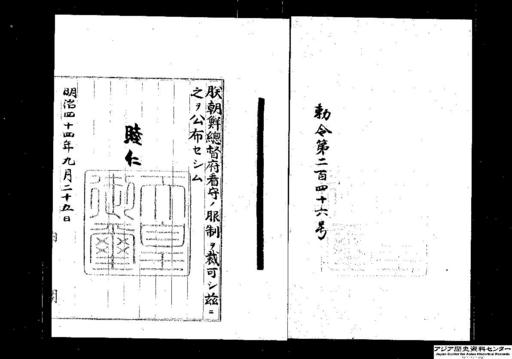 勅令第二百四十六号
朕朝鮮總督府看守ノ服制ヲ裁可シ茲ニ
之ヲ公布セシム
睦仁
天皇御璽
明治四十四年九月二十五日
アジア歴史資料センター
Japan Center for Asian Historical Records